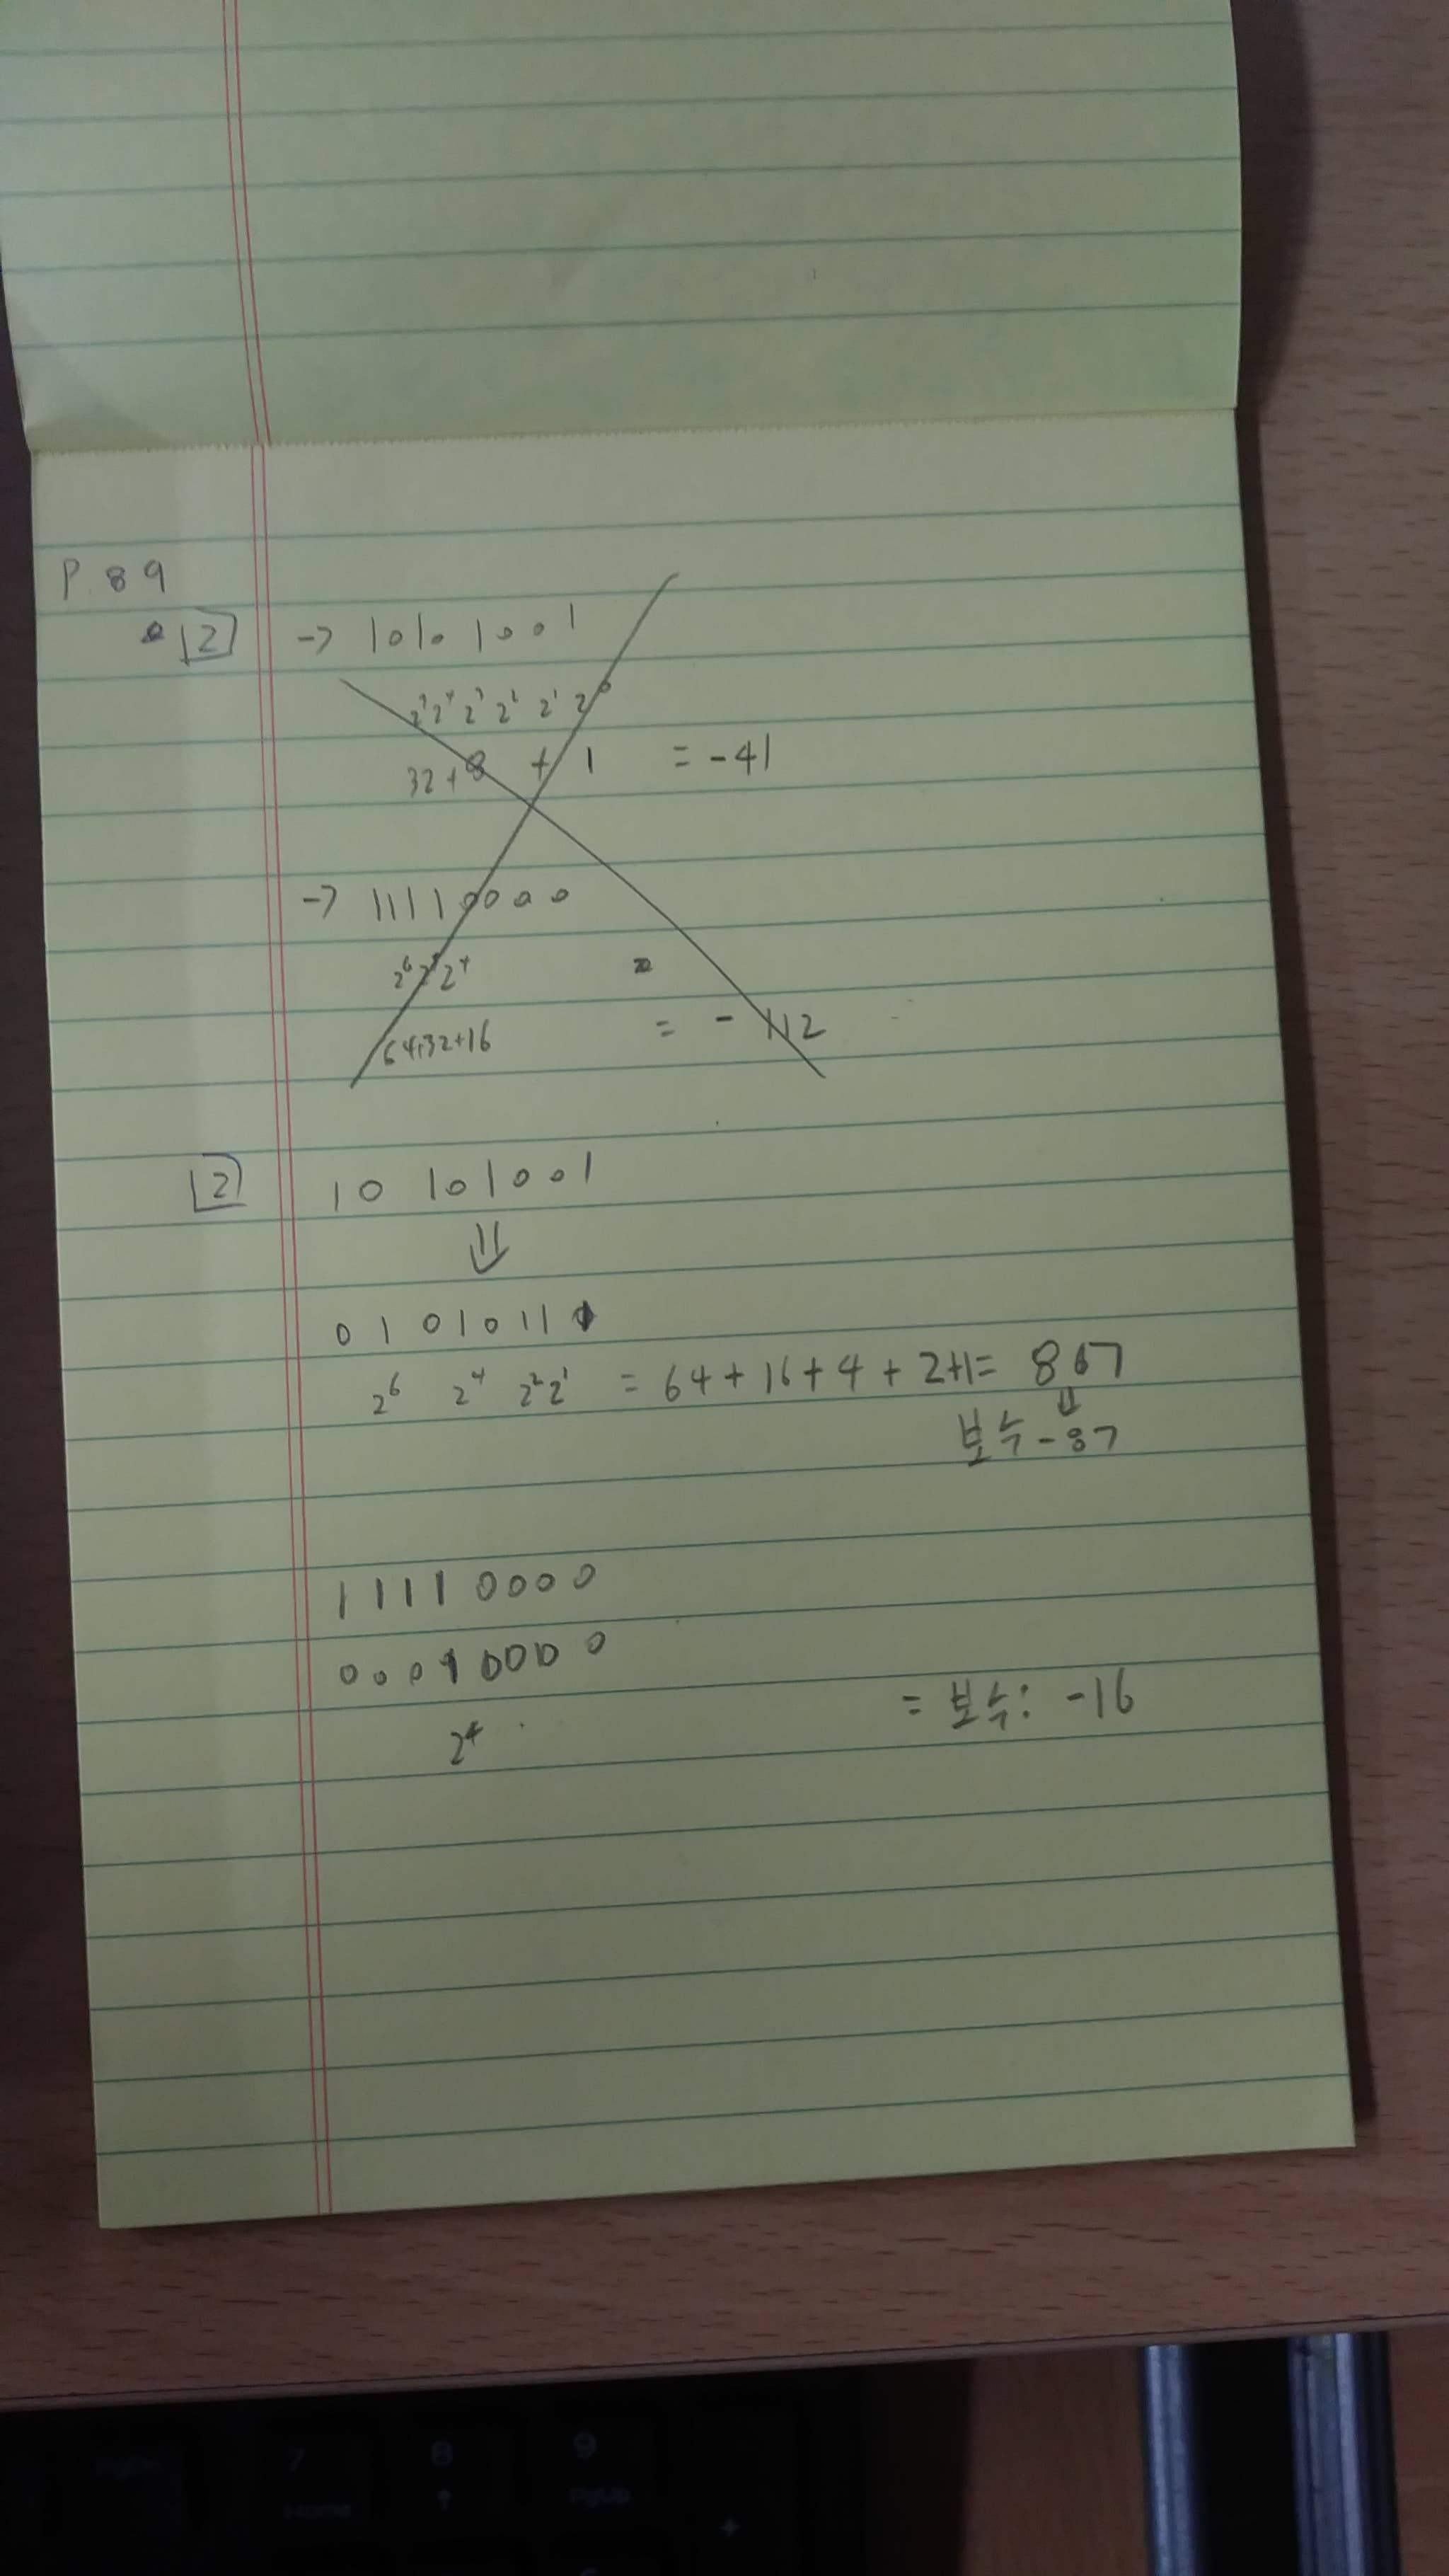 P. 89
[2] -> 10101001
2⁵ 2⁴ 2³ 2² 2¹ 2⁰
32+8 + 1 = -41
-> 11110000
2⁶ 2⁵ 2⁴
64+32+16 = - 112
[2] 10101001
⇓
01010111
2⁶ 2⁴ 2² 2¹ = 64+16+4+2+1= 87
⇓
보수 -87
11110000
00010000
2⁴ = 보수: -16
7
8
9
+